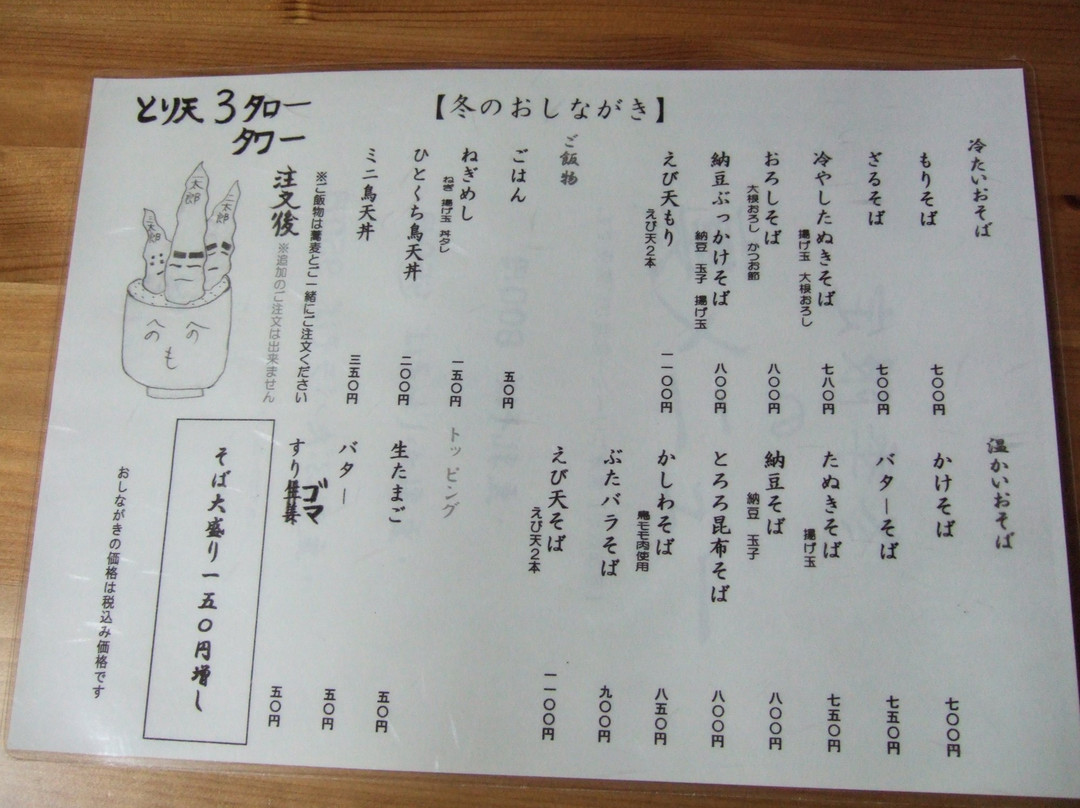 【冬のおしながき】
冷たいおそば
もりそば 七〇〇円
ざるそば 七〇〇円
冷やしたぬきそば 七八〇円
揚げ玉 大根おろし
おろしそば 八〇〇円
大根おろし かつお節
納豆ぶっかけそば 八〇〇円
納豆 玉子 揚げ玉
えび天もり 一一〇〇円
えび天2本
ご飯物
ごはん 五〇円
ねぎめし 一五〇円
ねぎ 揚げ玉 丼タレ
ひとくち鳥天丼 二〇〇円
ミニ鳥天丼 三五〇円
※ご飯物は蕎麦とご一緒にご注文ください
注文後
※追加のご注文は出来ません
とり天3タロー
タワー
一太郎
二太郎
三太郎
へのへの
も
温かいおそば
かけそば 七〇〇円
バターそば 七五〇円
たぬきそば 七五〇円
揚げ玉
納豆そば 八〇〇円
納豆 玉子
とろろ昆布そば 八〇〇円
かしわそば 八五〇円
鳥モモ肉使用
ぶたバラそば 九〇〇円
えび天そば 一一〇〇円
えび天2本
トッピング
生たまご 五〇円
バター 五〇円
すりゴマ 五〇円
そば大盛り一五〇円増し
おしながきの価格は税込み価格です